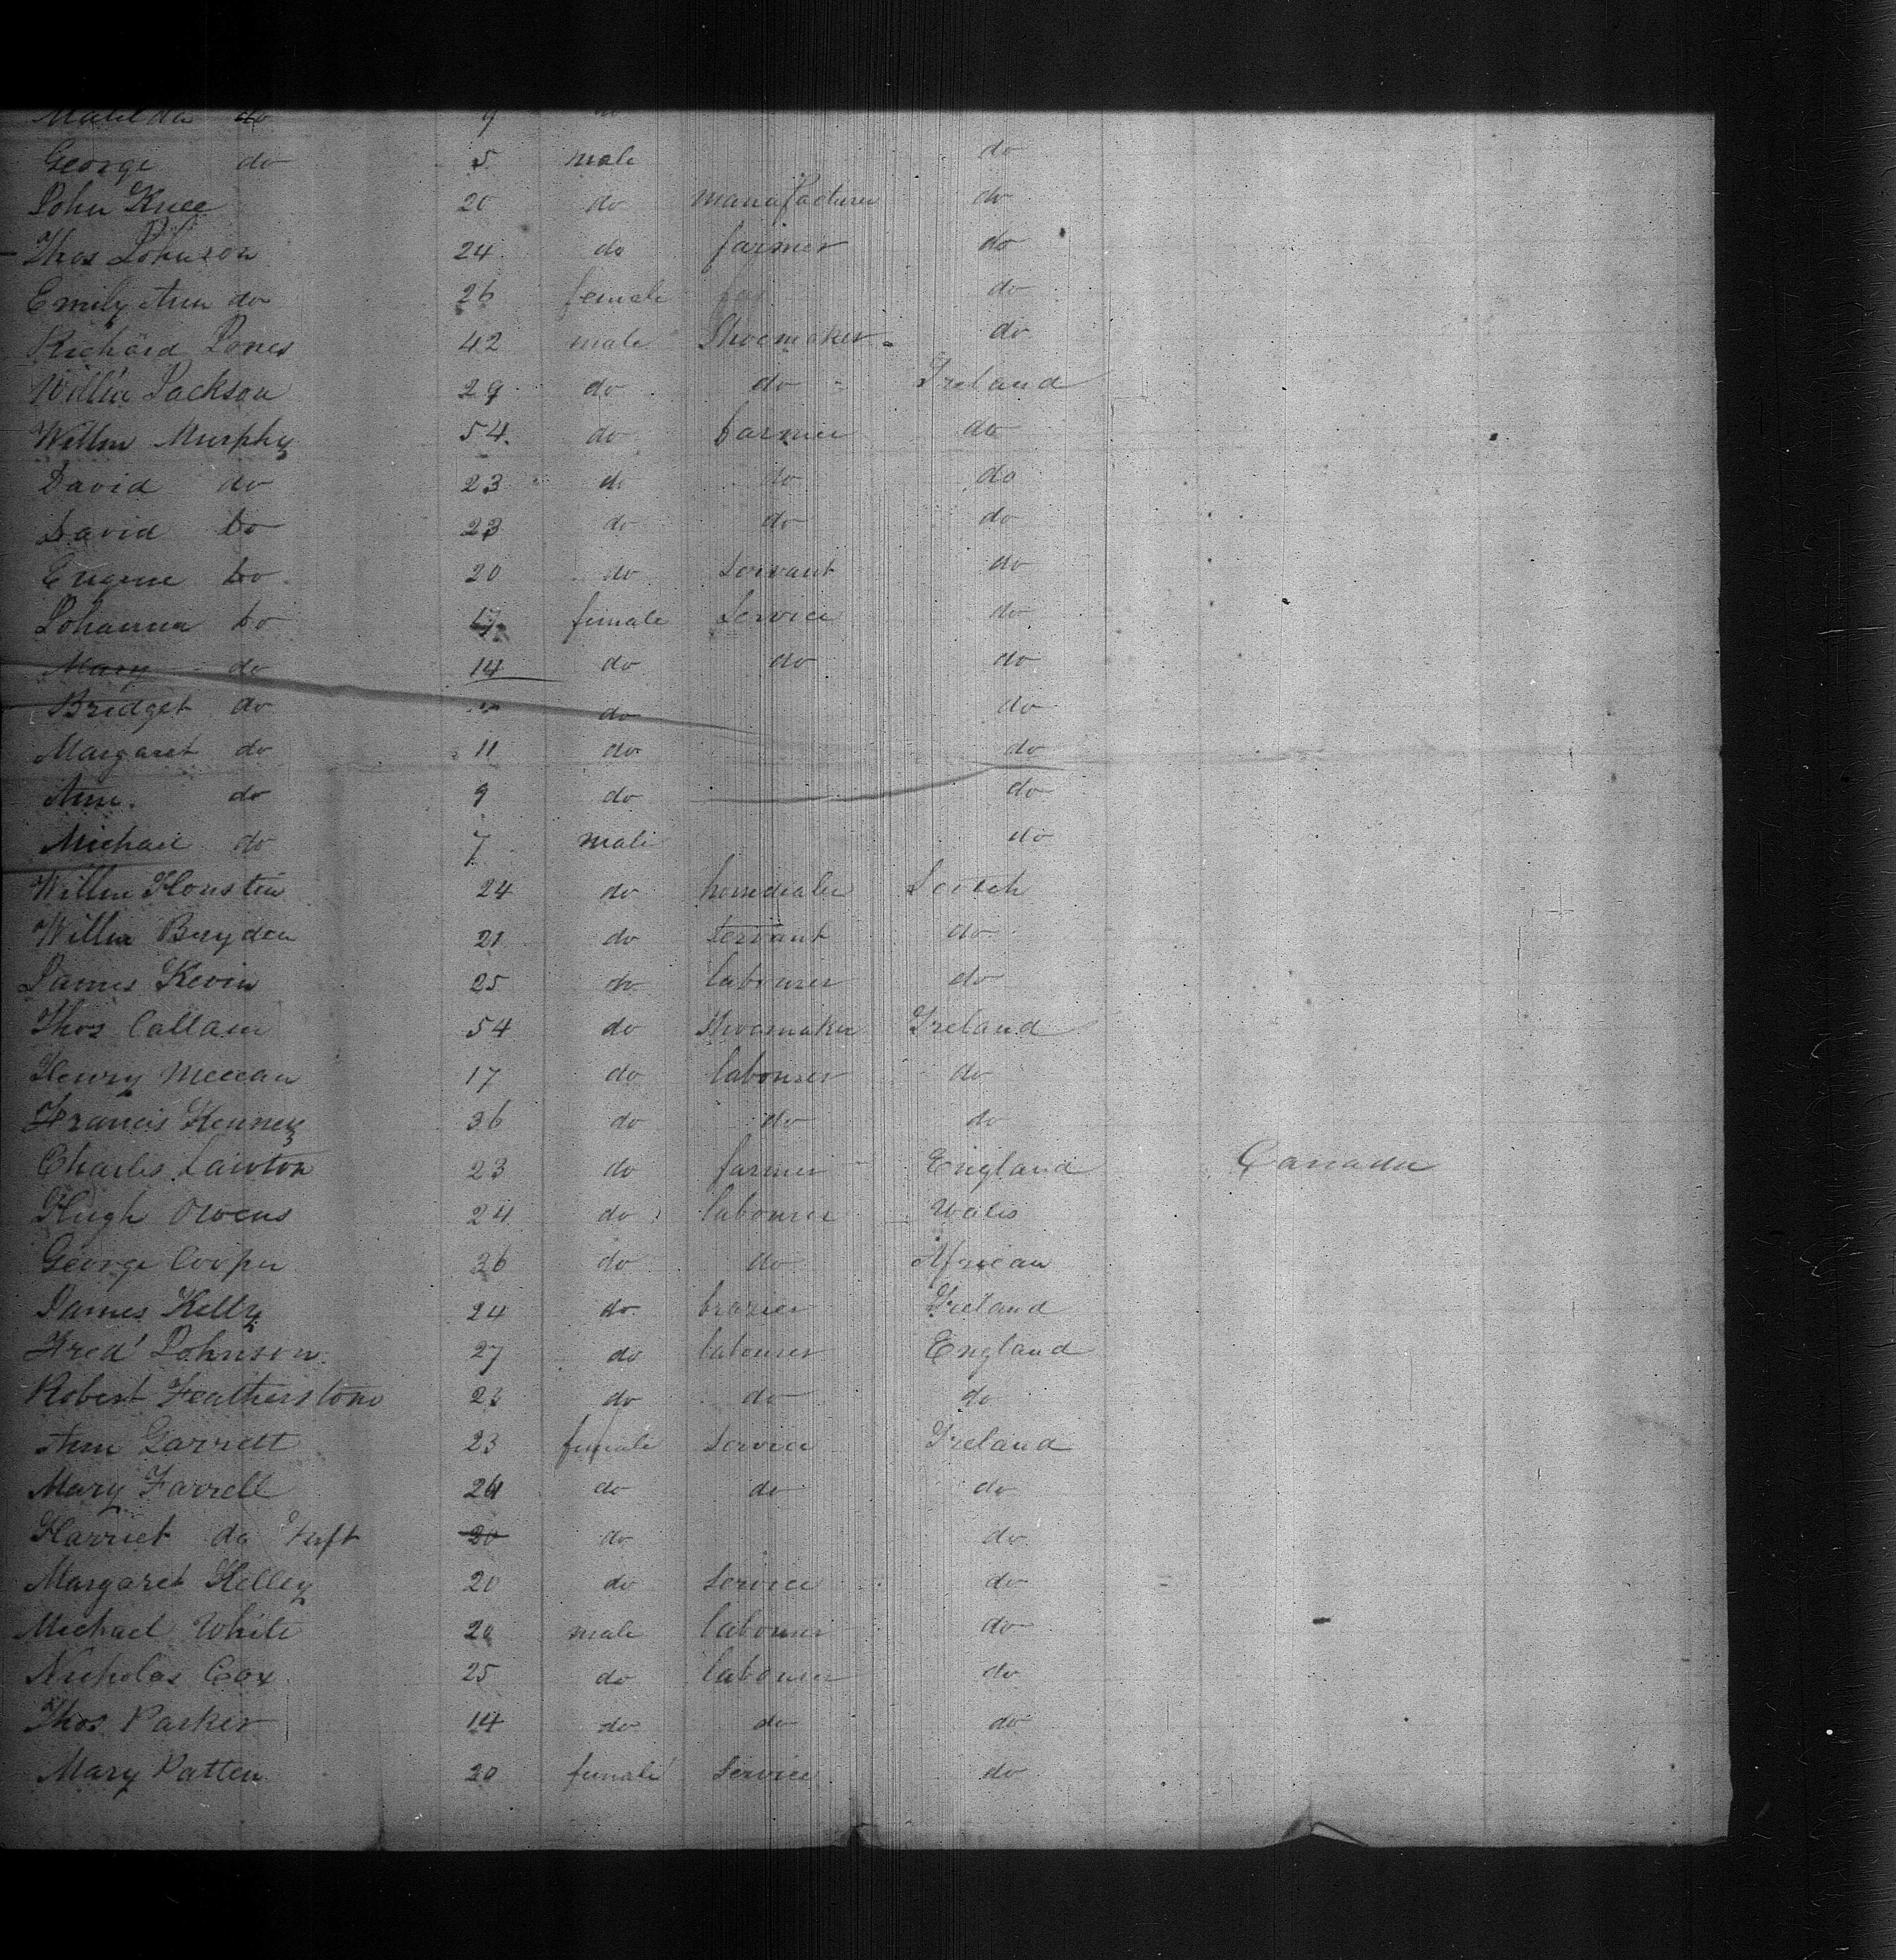 Matilda do 9 do
George do 5 male do
John Knee 20 do manufacturer do
Thos Johnson 24 do farmer do
Emily Ann do 26 female do
Richard Jones 42 male Shoemaker do
Willm Jackson 29 do do Ireland
Willm Murphy 54 do farmer do
David do 23 do do do
David do 23 do do do
Eugene do 20 do Servant do
Johanna do female Service do
Mary do 14 do do do
Bridget do do do
Margaret do 11 do do
Ann do 9 do do
Michael do 7 male do
Willm Houston 24 do horsedealer Scotch
Willm Bryden 21 do servant do
James Kevin 25 do labourer do
Thos Callam 54 do Shoemaker Ireland
Henry 17 do labourer do
Francis Kenney 36 do do do
Charles Lawton 23 do farmer England Canada
Hugh Owens 24 do labourer Wales
George Cooper 36 do do African
James Kelly 24 do brazier Ireland
Fred Johnson 27 do labourer England
Robert Featherstone 23 do do do
Ann Garrett 23 female Service Ireland
Mary Farrell 24 do do do
Harriet do 20 do do
Margaret Kelley 20 do Service do
Michael White 20 male labourer do
Nicholas Cox 25 do labourer do
Thos Parker 14 do do do
Mary Patten 20 female Service do